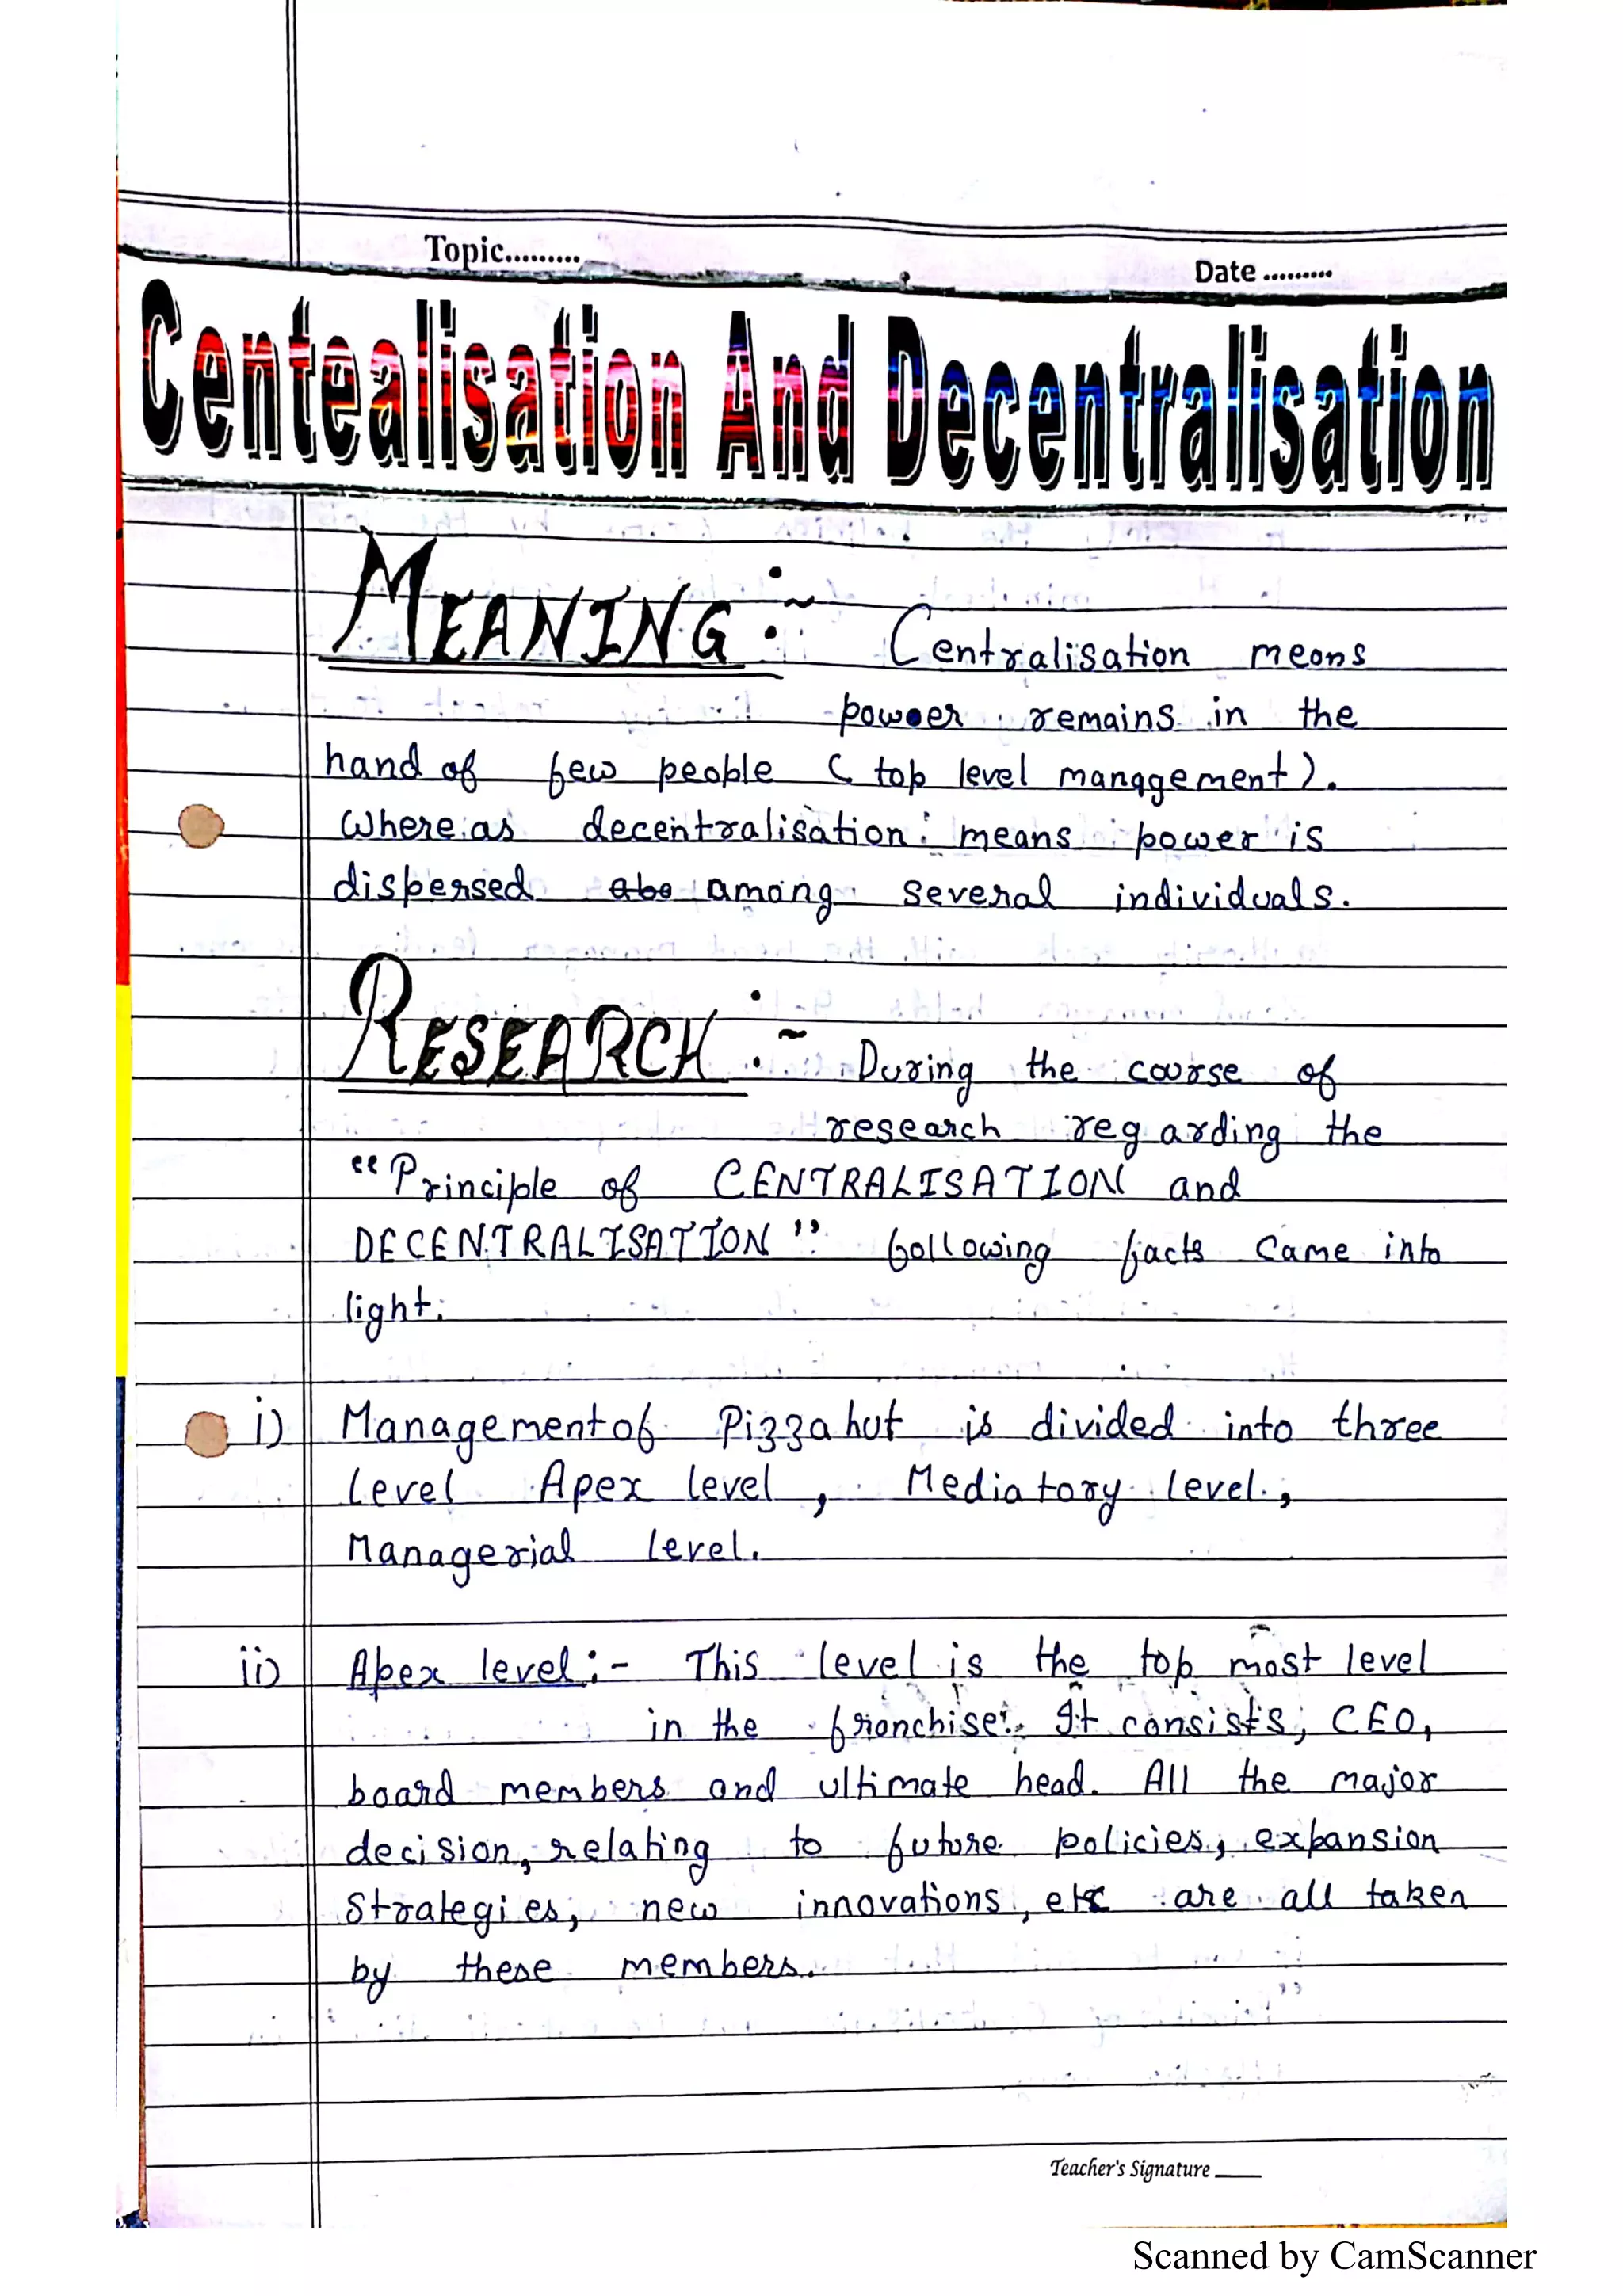 Topic.........
Date .........
Centealisation And Decentralisation
MEANING :~ Centralisation means
power remains in the
hand of few people ( top level management).
Whereas decentralisation means power is
dispersed among several individuals.
RESEARCH :~ During the course of
research regarding the
"Principle of CENTRALISATION and
DECENTRALISATION" following facts came into
light.
i) Management of Pizza hut is divided into three
level Apex level , Mediatory level ,
Managerial level.
ii) Apex level :- This level is the top most level
in the franchise. It consists, CEO,
board members and ultimate head. All the major
decision, relating to future policies, expansion
strategies, new innovations, etc are all taken
by these members.
Teacher's Signature
Scanned by CamScanner